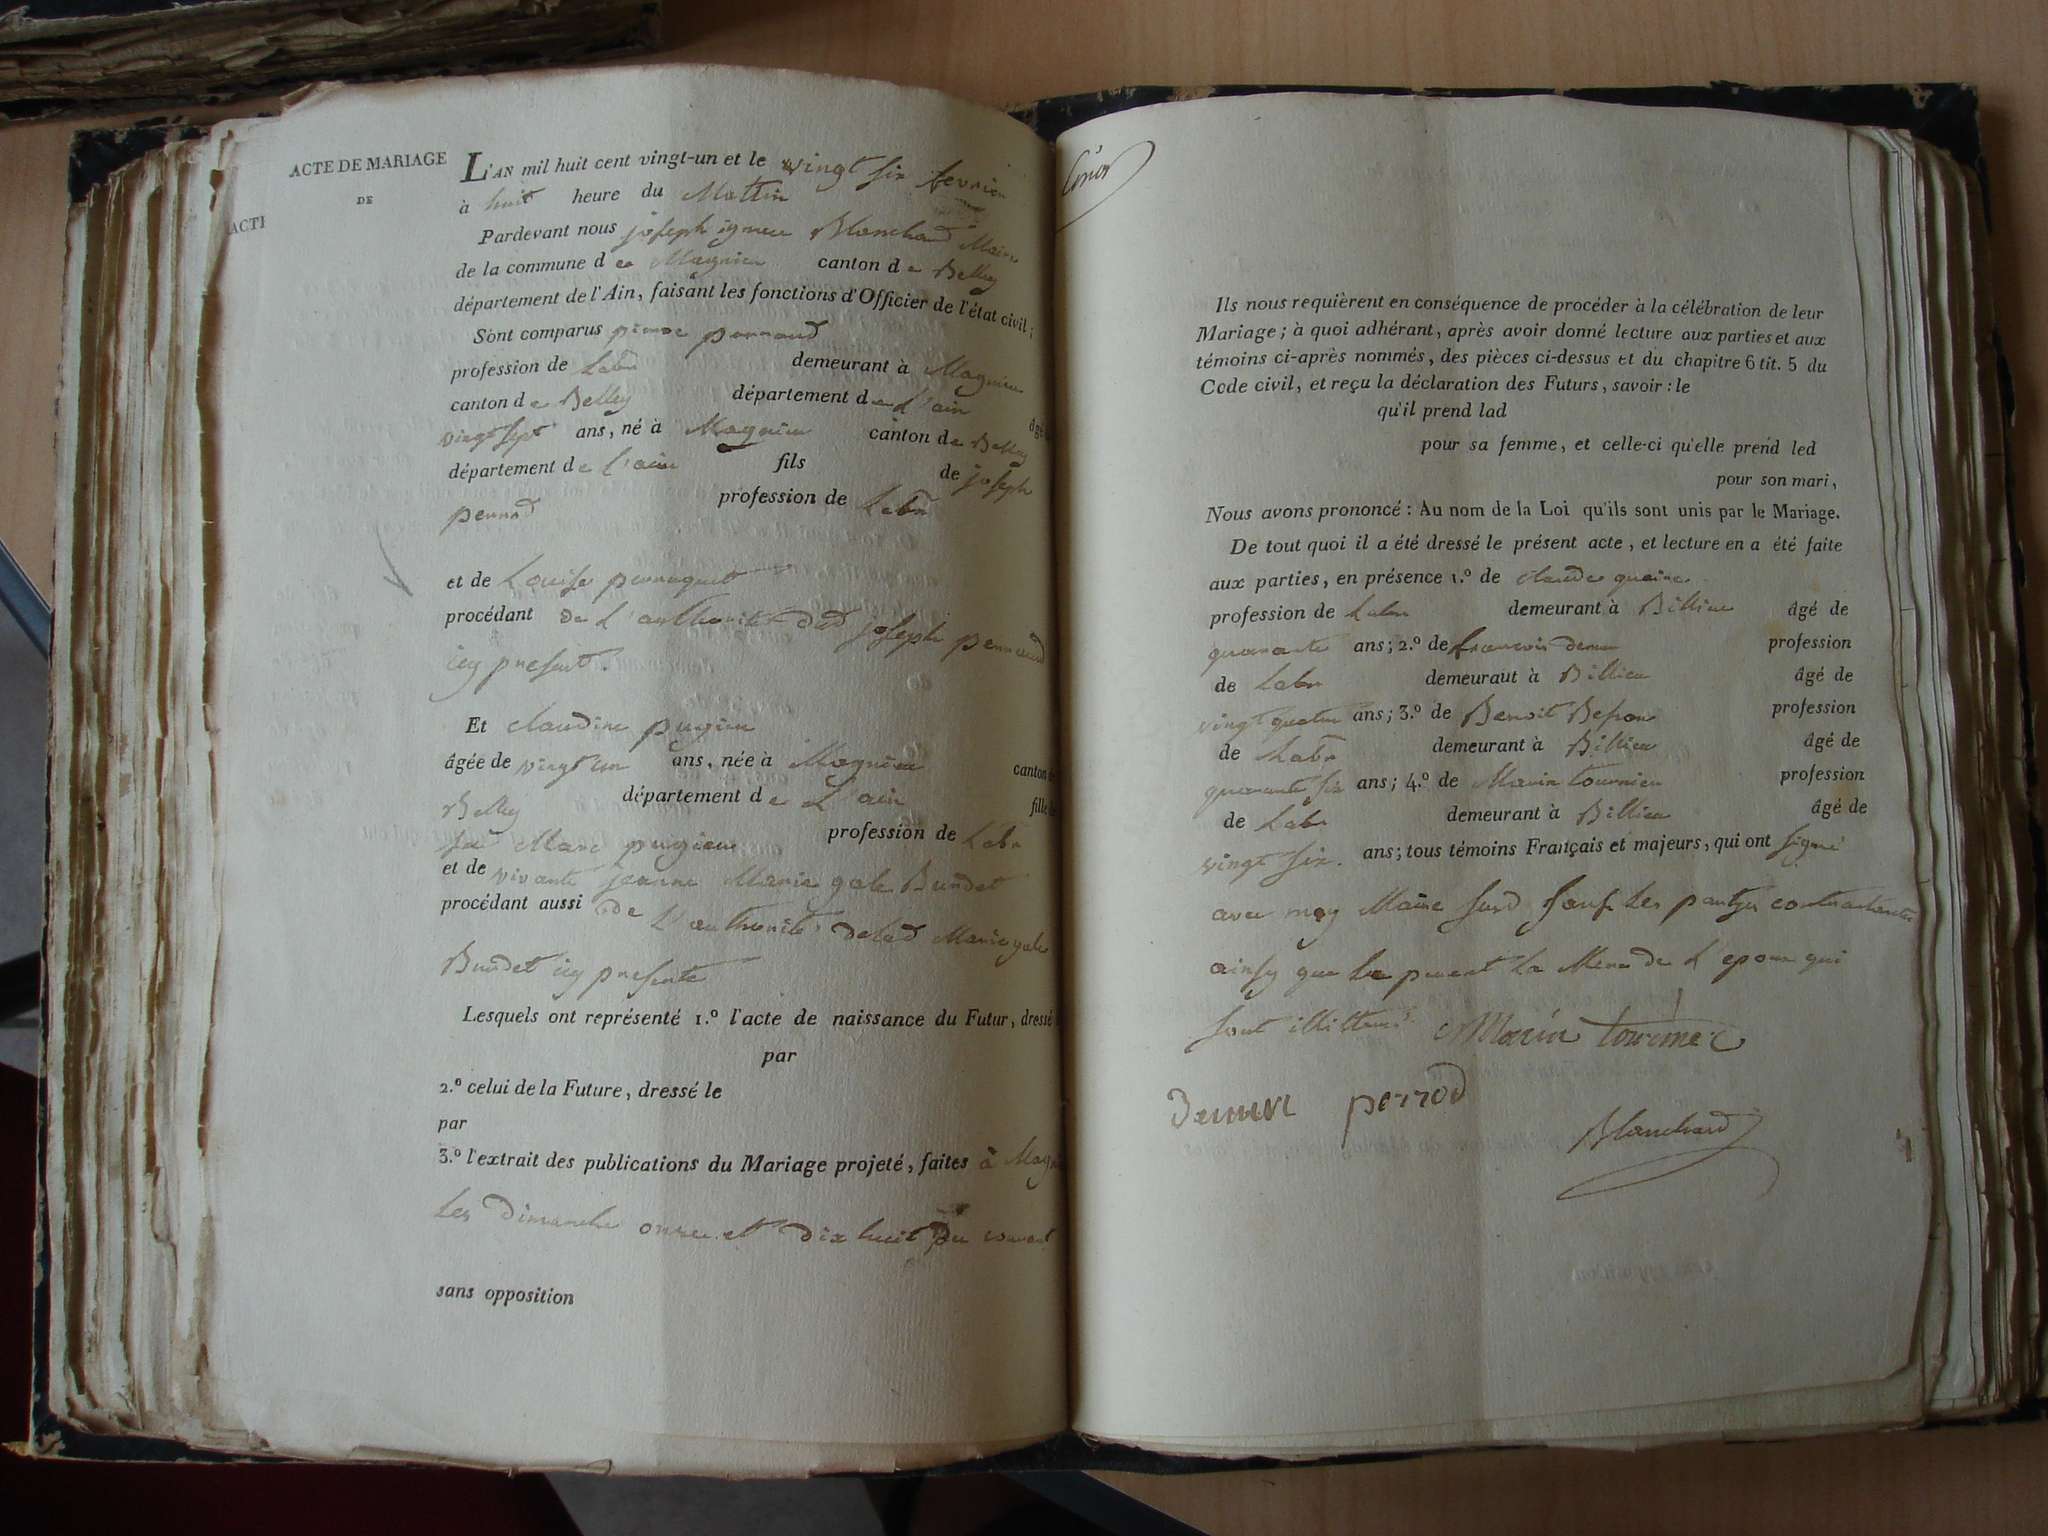 ACTE DE MARIAGE
DE
ACTI
L'AN mil huit cent vingt-un et le vingt six fevrier
à huit heure du Mattin
Pardevant nous joseph Blanchard Maire
de la commune de Magnieu canton de Belley
département de l'Ain, faisant les fonctions d'Officier de l'état civil;
Sont comparus pierre perroud
profession de Labr demeurant à Magnieu
canton de Belley département de L'ain âgé
vingt sept ans, né à Magnieu canton de Belley
département de L'ain fils de joseph
perrod profession de Labr
et de Louise perruquet
procédant de L'authorité dud joseph perroud
icy present.
Et claudine pugieu
âgée de vingt un ans, née à Magnieu canton de
Belley département de L'ain fille
feu Marc pugieu profession de Labr
et de vivante jeanne Marie gale Burdet
procédant aussi de L'authorité delad Marie gale
Burdet icy presente
Lesquels ont représenté 1.º l'acte de naissance du Futur, dressé
par
2.º celui de la Future, dressé le
par
3.º l'extrait des publications du Mariage projeté, faites à Magnieu
Les Dimanche onze et dix huit du courant
sans opposition
Ils nous requièrent en conséquence de procéder à la célébration de leur
Mariage; à quoi adhérant, après avoir donné lecture aux parties et aux
témoins ci-après nommés, des pièces ci-dessus et du chapitre 6 tit. 5 du
Code civil, et reçu la déclaration des Futurs, savoir: le
qu'il prend lad
pour sa femme, et celle-ci qu'elle prend led
pour son mari,
Nous avons prononcé: Au nom de la Loi qu'ils sont unis par le Mariage.
De tout quoi il a été dressé le présent acte, et lecture en a été faite
aux parties, en présence 1.º de claude
profession de Labr demeurant à Billieu âgé de
quarante ans; 2.º de francois profession
de Labr demeurant à Billieu âgé de
vingt quatre ans; 3.º de Benoit profession
de Labr demeurant à Billieu âgé de
quarante six ans; 4.º de Marin tournier profession
de Labr demeurant à Billieu âgé de
vingt six. ans; tous témoins Français et majeurs, qui ont signé
avec moy Maire susd sauf Les partyes contractantes
ainsy que la Mere de L'epoux qui
sont illitteré Marin tournier
perrod
Blanchard